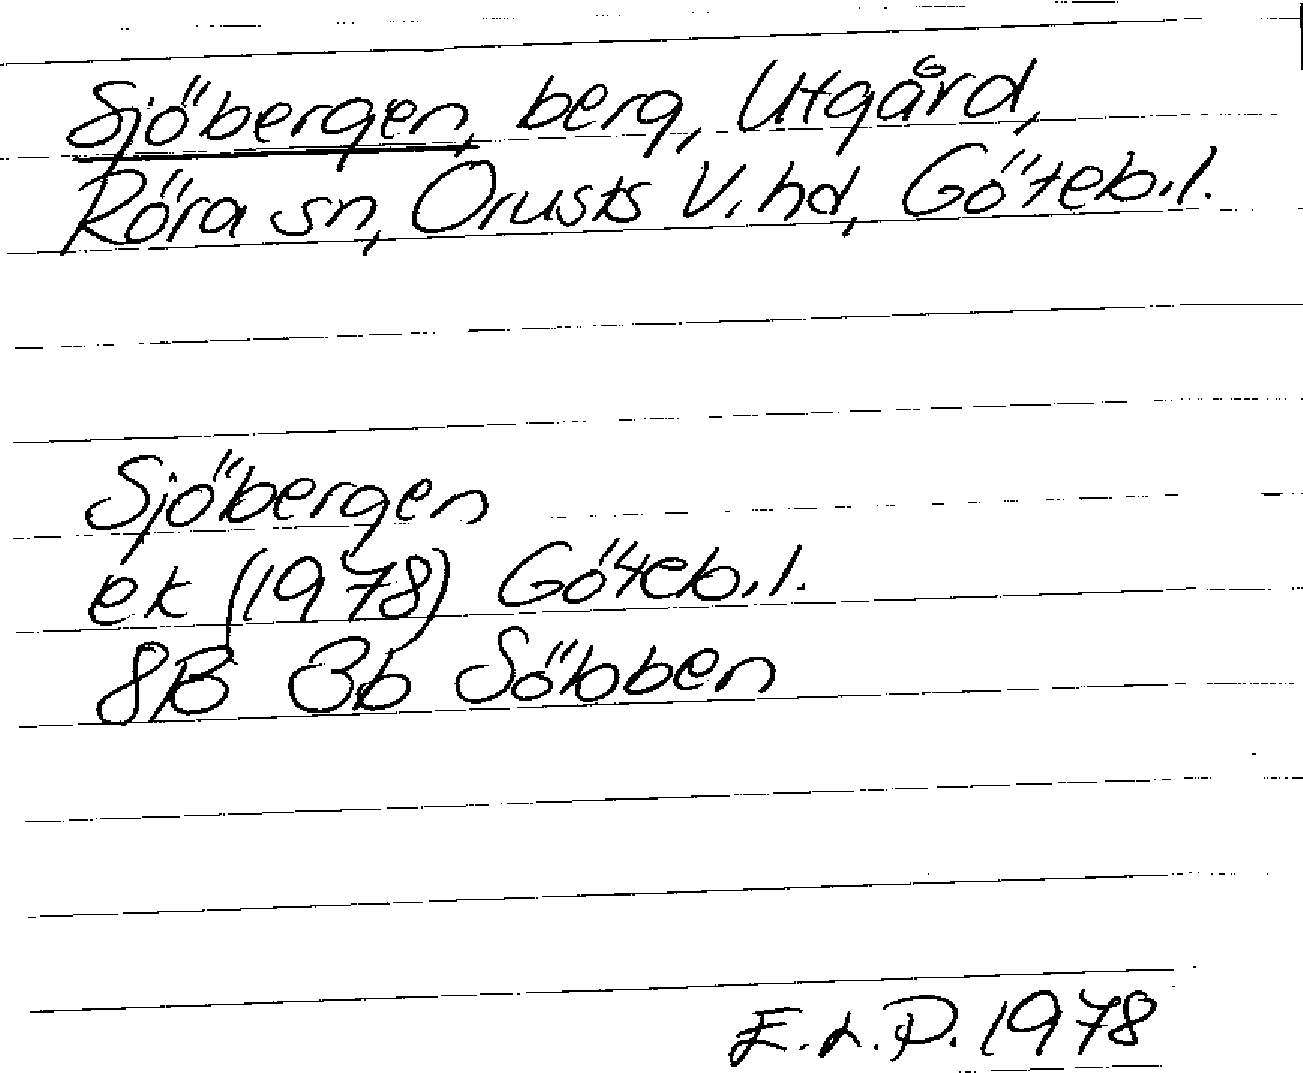 Sjöbergen, berg, Utgård,
Röra sn, Orusts V. hd, Göteb.l.
Sjöbergen
ek (1978) Göteb.l.
8B 3b Söbben
E.L.P. 1978